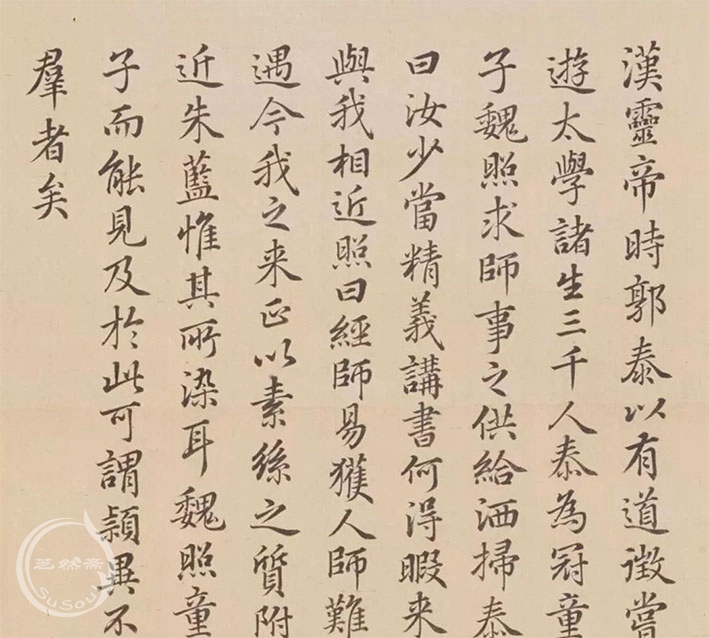 漢靈帝時郭泰以有道徵嘗
遊太學諸生三千人泰為冠童
子魏照求師事之供給洒掃泰
曰汝少當精義講書何得暇来
與我相近照曰經師易獲人師難
遇今我之来正以素絲之質附
近朱藍惟其所染耳魏照童
子而能見及於此可謂穎異不
羣者矣
芝然斋
SuSou